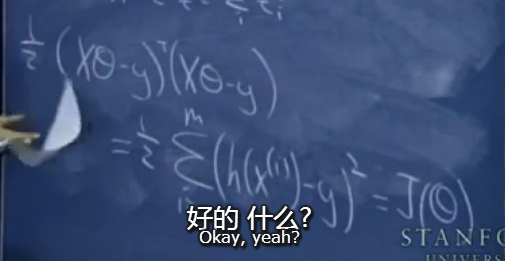 ½ (Xθ-y)ᵀ(Xθ-y)
= ½ Σᵢᵐ (h(x⁽ⁱ⁾)-y)² = J(θ)
好的 什么?
Okay, yeah?
STANFO
UNIVERS